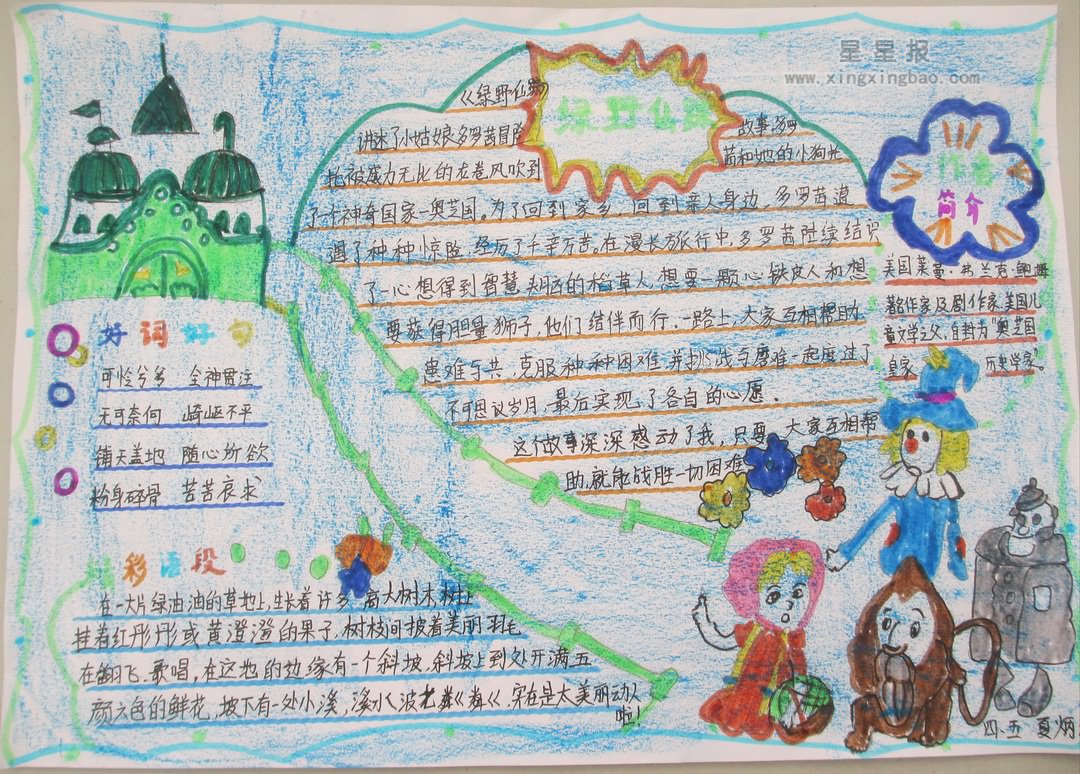 星星报
www.xingxingbao.com
绿野仙踪
《绿野仙踪》
讲述了小姑娘多罗茜冒险故事。多罗
茜和她的小狗
托托被威力无比的龙卷风吹到
了一个神奇国家-奥芝国。为了回到家乡,回到亲人身边,多罗茜遭
遇了种种惊险,经历了千辛万苦。在漫长旅行中,多罗茜陆续结识
了一心想得到智慧头脑的稻草人,想要一颗心铁皮人和想
要获得胆量狮子,他们结伴而行。一路上,大家互相帮助
患难与共,克服种种困难,并挑战与磨难一起度过了
不可思议岁月,最后实现了各自的心愿。
这个故事深深感动了我,只要大家互相帮
助,就能战胜一切困难
作者
简介
美国莱曼·弗兰克·鲍姆
著名作家及剧作家,美国儿
童文学之父,自封为“奥芝国
皇家历史学家”
好词好句
可怜兮兮 全神贯注
无可奈何 崎岖不平
铺天盖地 随心所欲
粉身碎骨 苦苦哀求
彩语段
在一大片绿油油的草地上,生长着许多高大树木,树上
挂着红彤彤或黄澄澄的果子,树枝间披着美丽羽毛
在翻飞、歌唱,在这地的边缘有一个斜坡,斜坡上到处开满五
颜六色的鲜花,坡下有一处小溪,溪水波光粼粼,实在是太美丽动人
啦!
四.五 夏炳